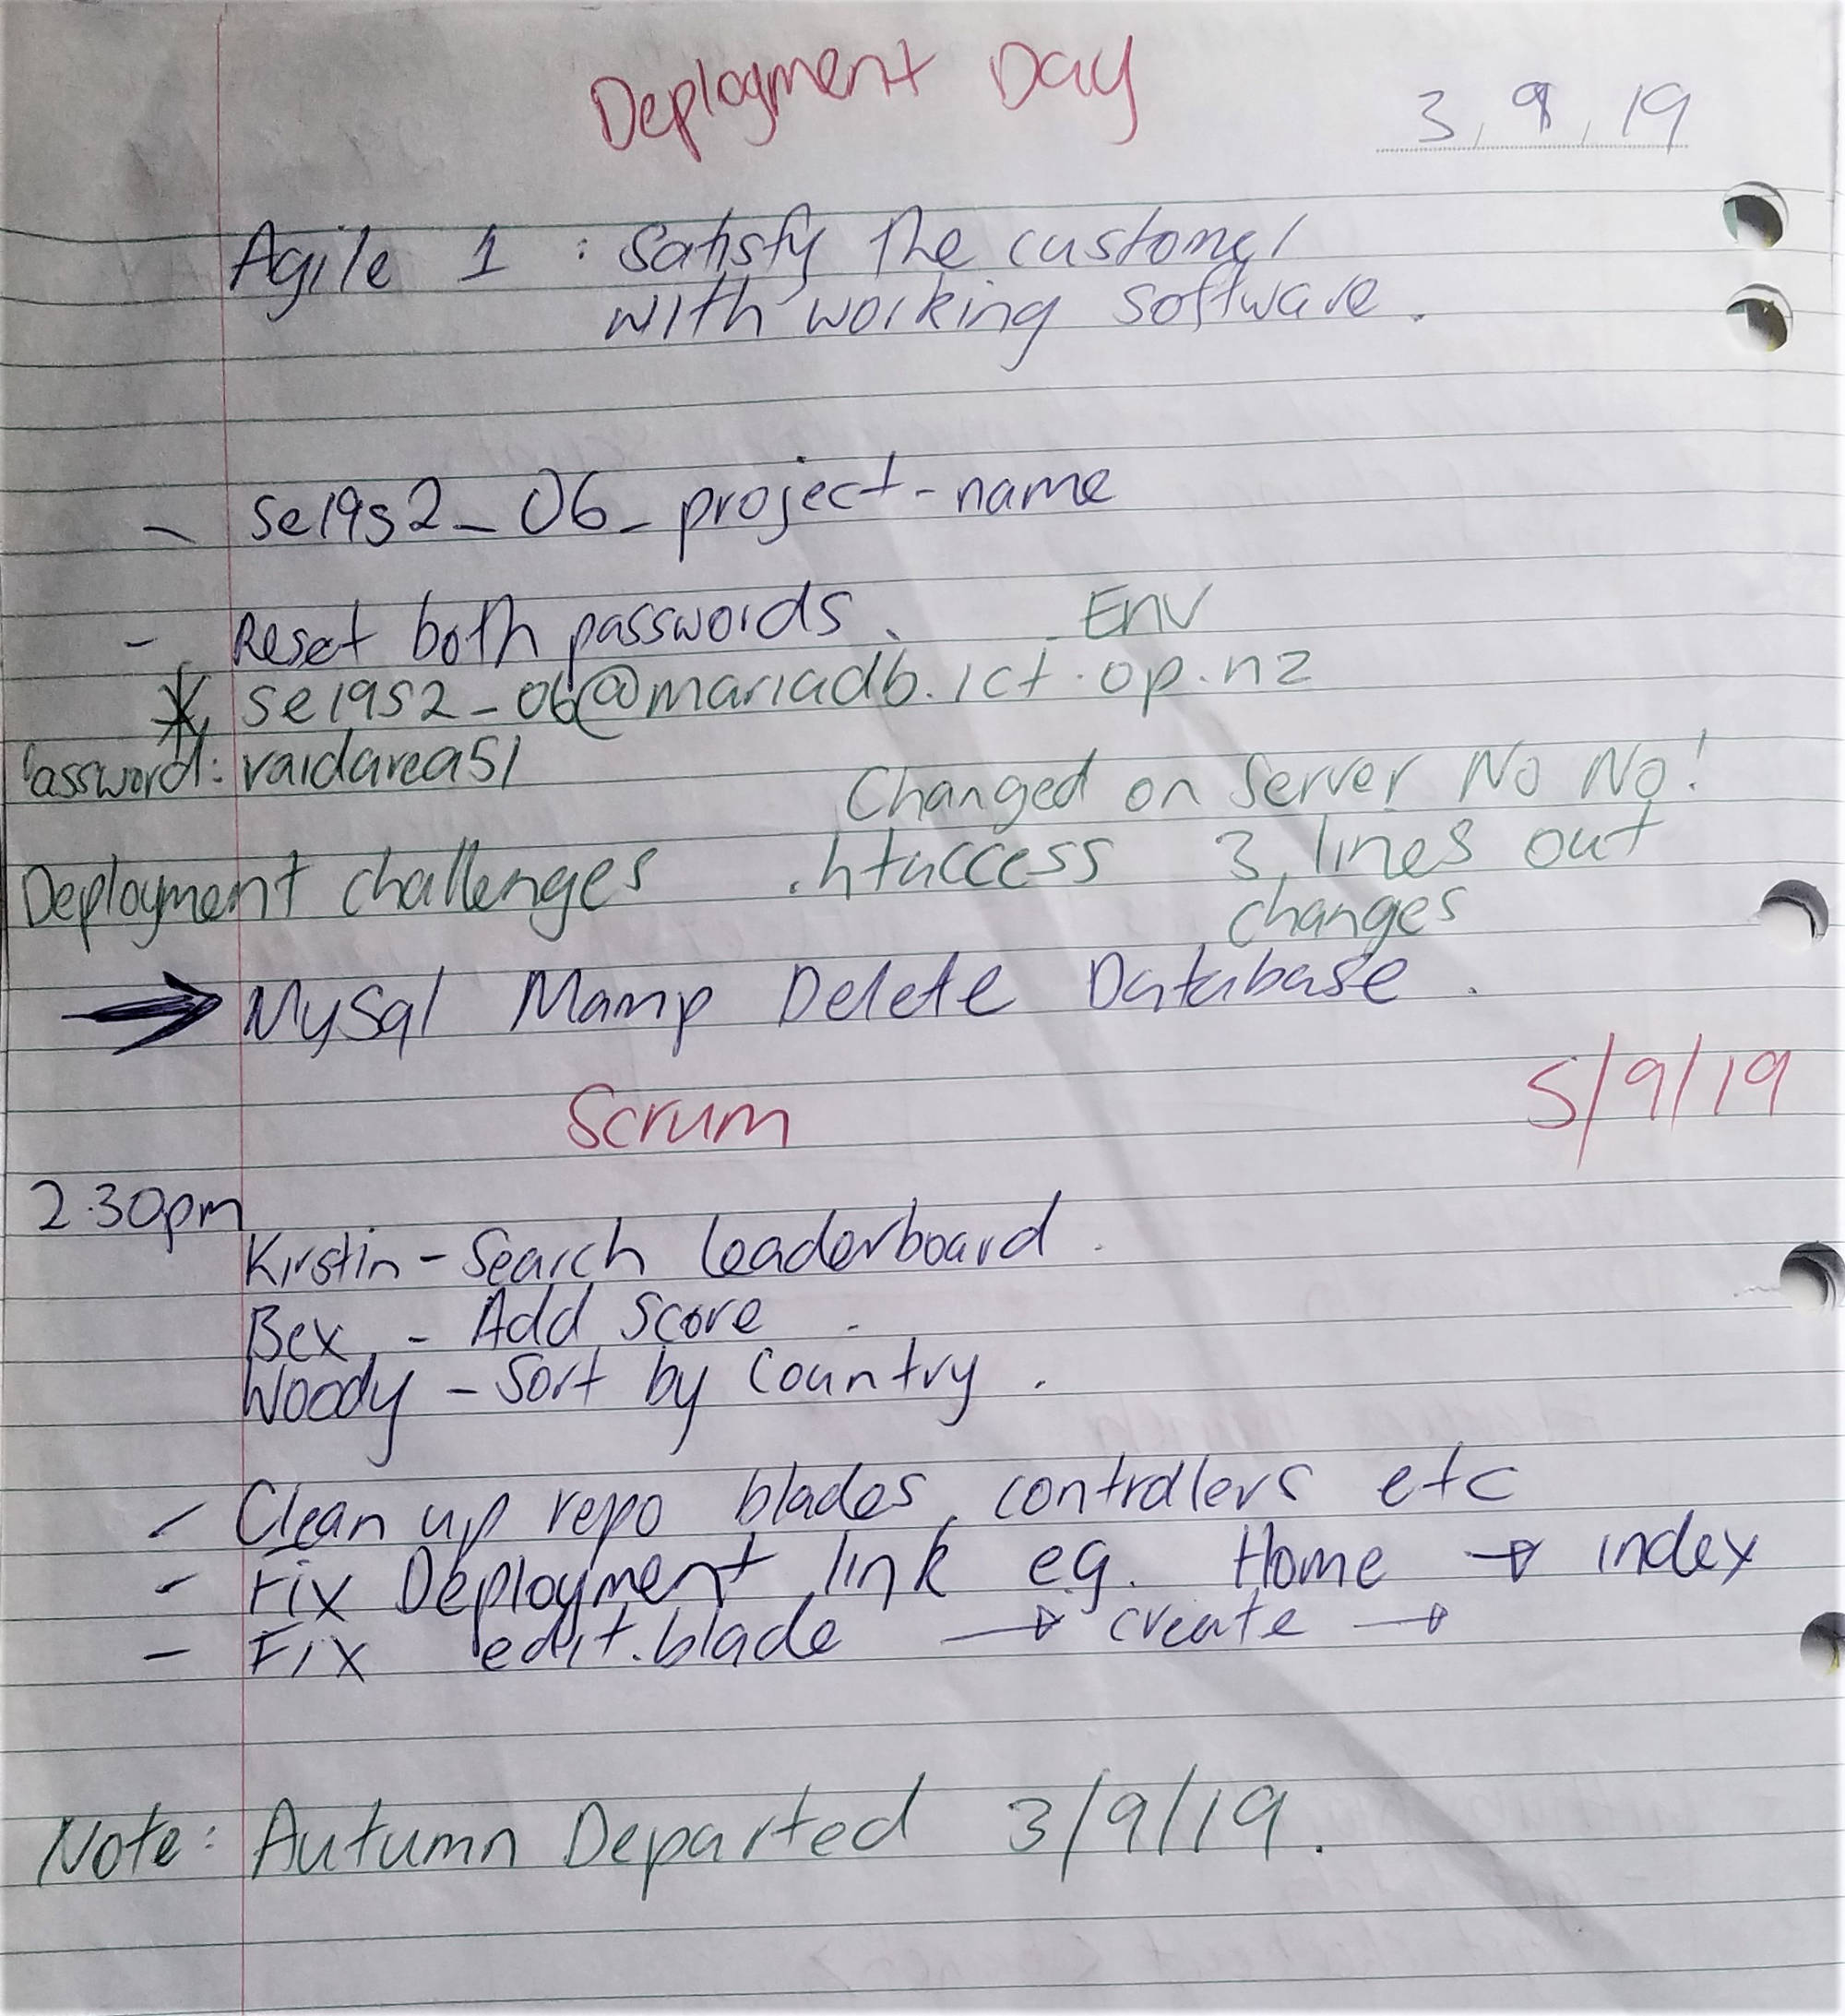 Deployment Day
3, 9, 19
Agile 1 : Satisfy the customer
with working software.
- se19s2_06_project-name
- Reset both passwords. .Env
* se19s2_06@mariadb.ict.op.nz
Password: raidarea51
Changed on Server No No!
Deployment challenges .htaccess 3 lines out
changes
→ MySql Mamp Delete Database.
Scrum 5/9/19
2.30pm
Kirstin - Search leaderboard.
Bex - Add Score.
Woody - Sort by Country.
- Clean up repo blades, controllers etc
- Fix Deployment link eg. Home → index
- Fix edit.blade → create →
Note: Autumn Departed 3/9/19.